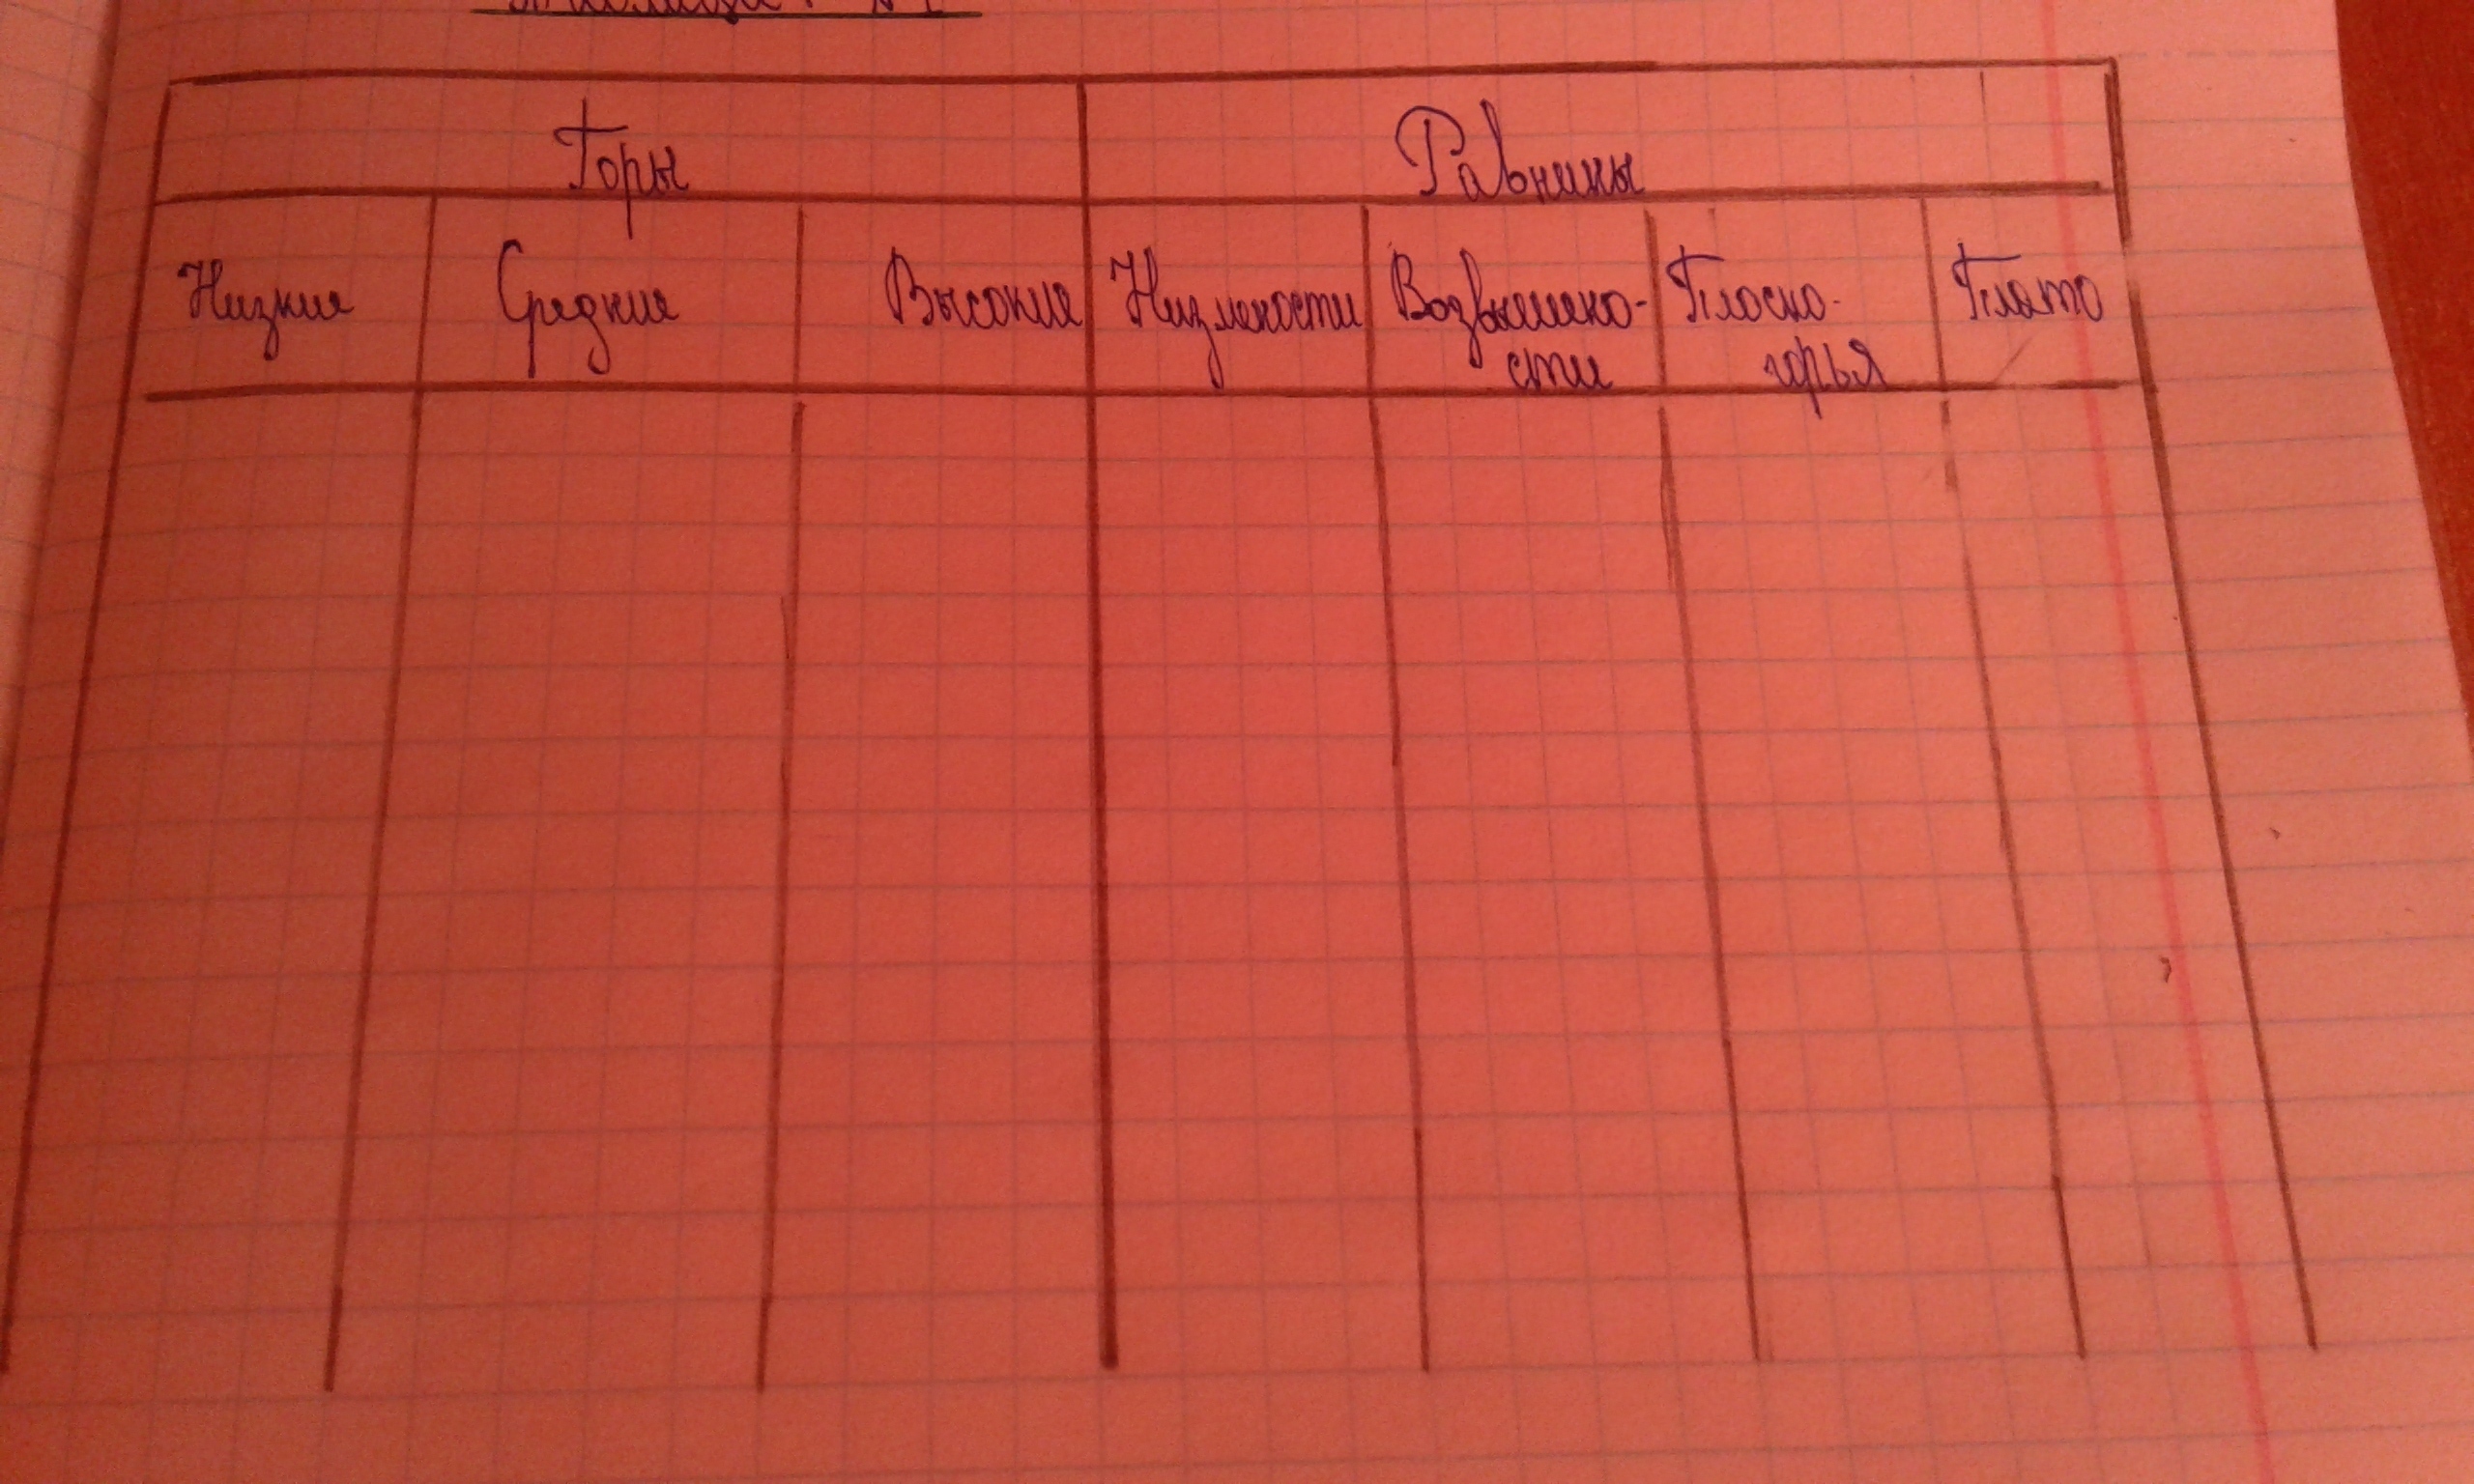 Горы Равнины
Низкие Средние Высокие Низменности Возвышено- Плоско- Плато
сти горья